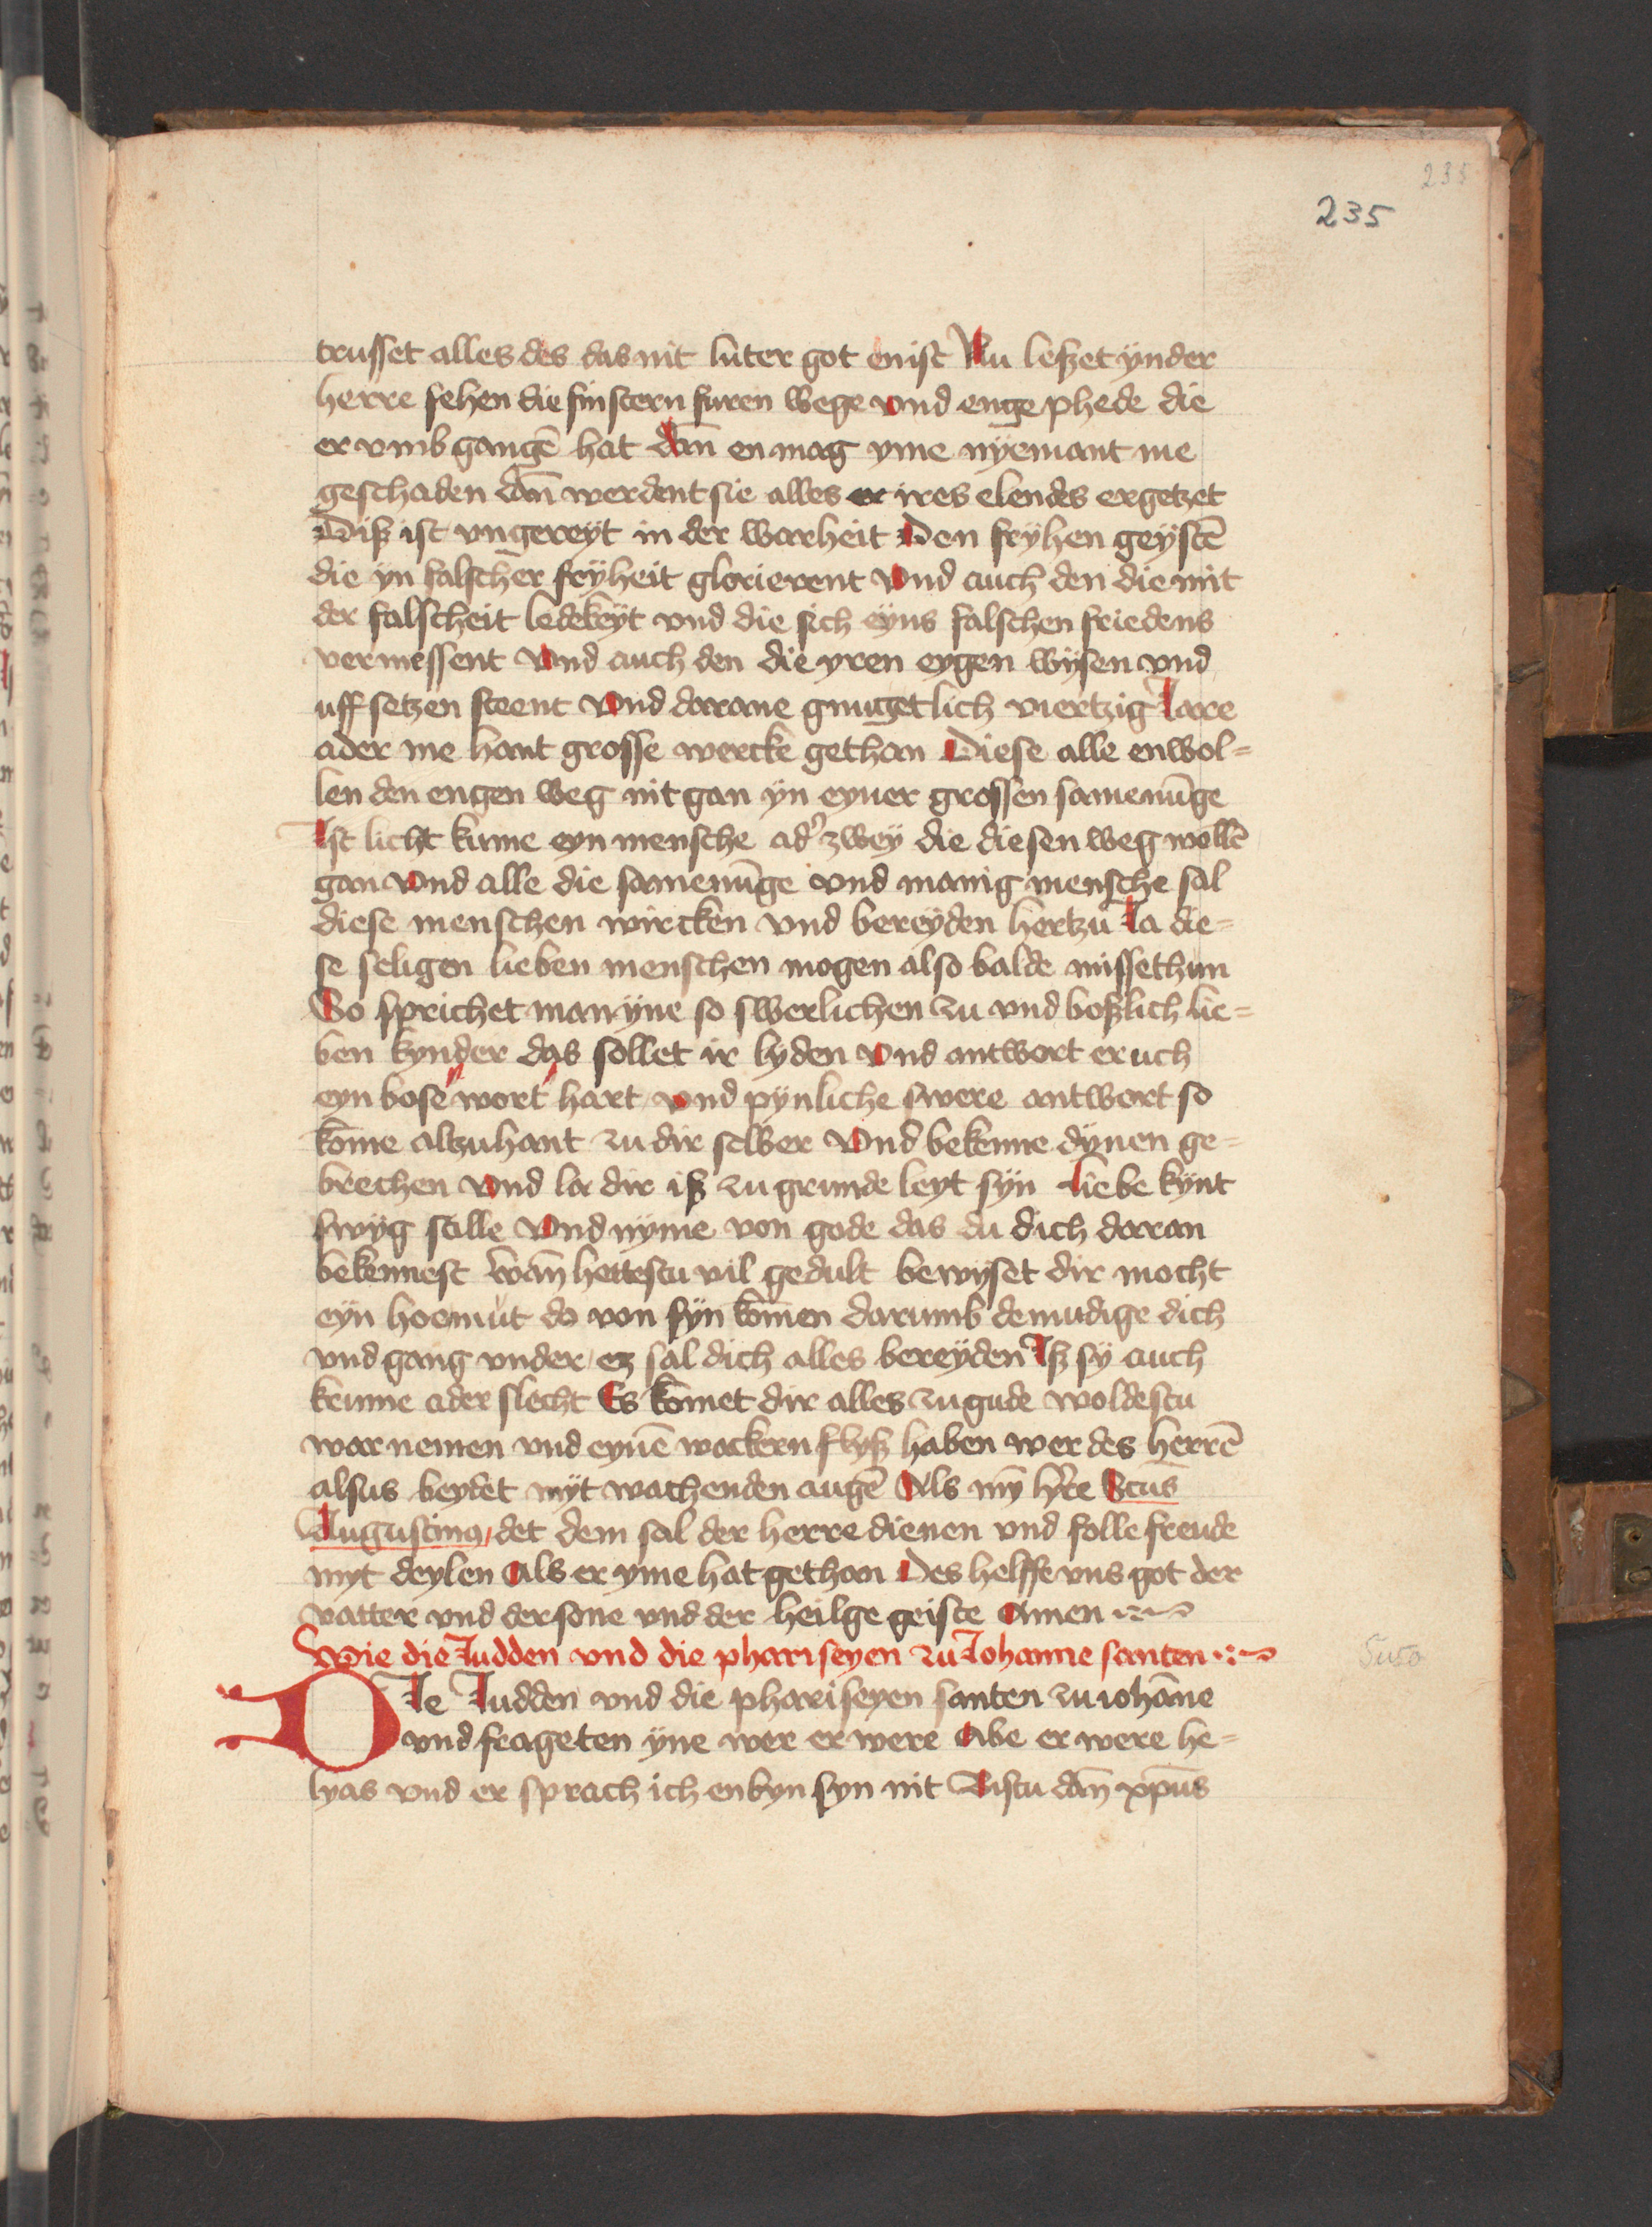 235
235
trusset alles des das nit luter got enist Nu leszet ynder
herre sehen die finstern furen wege vnd enge phede die
er vmb gangē hat dān en mag yme nyemant me
geschaden dān werdent sie alles er ires elendes ergetzet
Disz ist vngereyt in der warheit Den fryhen geystē
die yn falscher fryheit glorierent vnd auch den die mit
der falscheit ledekeyt vnd die sich eyns falschen friedens
vermessent vnd auch den die yren eygen wysen vnd
uff setzen steent vnd darane gnuget lich viertzig Iare
ader me hant grosse wercke gethan Diese alle enwol=
len den engen weg nit gan yn eyner grossen samenūge
Ist licht kume eyn mensche ad' zwey die diesen weg wollē
gan vnd alle die samenūge vnd manig mensche sal
diese menschen wircken vnd bereyden hertzu Ia die=
se seligen lieben menschen mogen also balde missethun
So sprichet man yne so swerlichen zu vnd boszlich lie=
ben kynder das sollet ir lyden vnd antwort er uch
eyn bose wort hart vnd pynliche swere antwort so
kōme altzuhant zu dir selber vnd bekenne dynen ge=
brechen vnd la dir isz zu grunde leyt syn Liebe kynt
swyg stille vnd nyme von gode das du dich daran
bekennest wān hettestu vil gedult bewyset dir mocht
eyn hoemut do von syn kōmen darumb demudige dich
vnd gang vnder ez sal dich alles bereyden Isz sy auch
krume ader slecht Es kōmet dir alles zu gude woldestu
war nemen vnd eynē wackern flysz haben wer des herrē
alsus beydet myt wachenden augē Als mȳ h're Sctūs
Augustinus det dem sal der herre dienen vnd folle freude
myt deylen Als er yme hat gethan Des helffe vns got der
vatter vnd der sone vnd der heilge geiste Amen
Wie die Iudden vnd die phariseyen zu Iohanne santen
DIe Iudden vnd die phariseyen santen zu iohāne
vnd frageten yne wer er were Abe er were he=
lyas vnd er sprach ich enbyn syn nit Bistu dān xp̄us
Suso